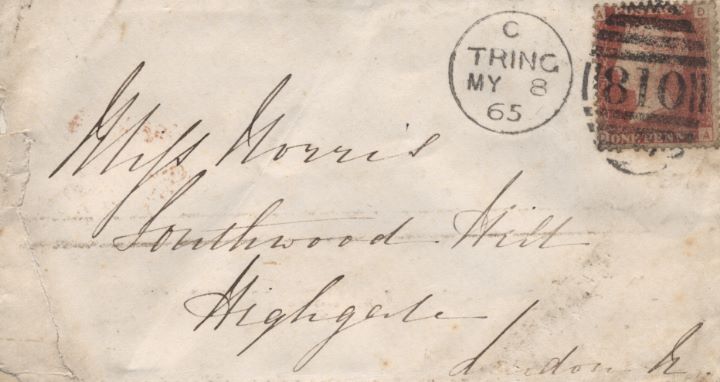 C
TRING
MY 8
65
A D
810
ONE PENNY
A
Miss Morris
Southwood Hill
Highgate
London N.